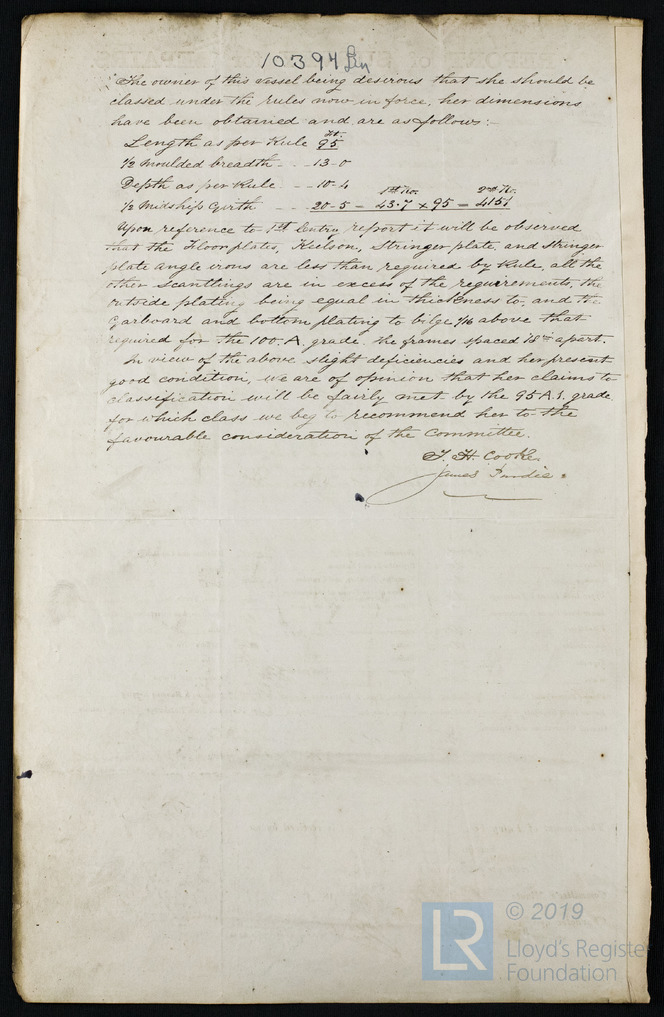 10394 Lin
The owner of this vessel being desirous that she should be
classed under the rules now in force, her dimensions
have been obtained and are as follows:-
Ft.
Length as per Rule 95
1/2 Moulded breadth - - 13-0
Depth as per Rule - - 10-4 1st No. 2nd No.
1/2 Midship Girth - - 20-5 = 43.7 x 95 = 4151
Upon reference to 1st Entry report it will be observed
that the Floorplates, Keelson, Stringer plate, and Stringer
plate angle irons are less than required by Rule, all the
other scantlings are in excess of the requirements, the
outside plating being equal in thickness to, and the
Garboard and bottom plating to bilge 1/16 above that
required for the 100.A. grade, the frames spaced 18ins apart.
In view of the above slight deficiencies and her present
good condition, we are of opinion that her claims to
classification will be fairly met by the 95 A.1. grade
for which class we beg to recommend her to the
favourable consideration of the Committee.
T. H. Cooke.
James Purdie.
LR
© 2019
Lloyd's Register
Foundation